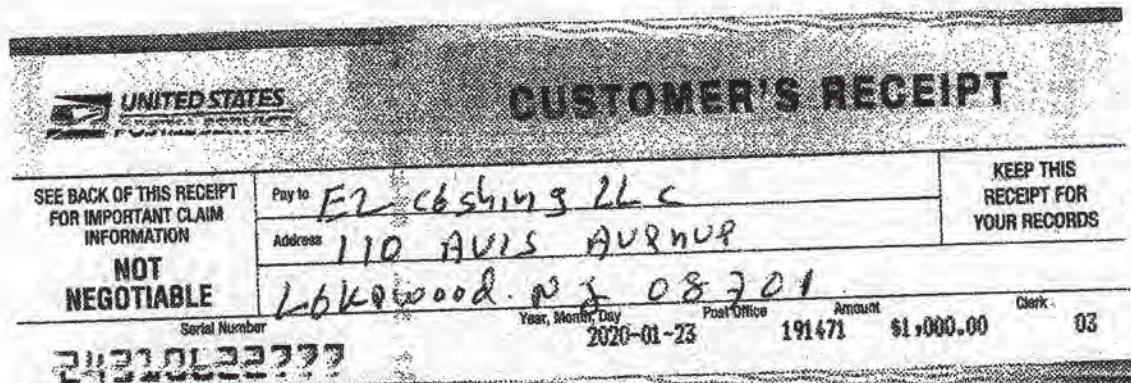 UNITED STATES
POSTAL SERVICE
CUSTOMER'S RECEIPT
SEE BACK OF THIS RECEIPT
FOR IMPORTANT CLAIM
INFORMATION
NOT
NEGOTIABLE
Pay to EZ Cashing LLC
Address 110 AVIS AVENUE
Lakewood. NJ 08701
KEEP THIS
RECEIPT FOR
YOUR RECORDS
Serial Number
Year, Month, Day
2020-01-23
Post Office
191471
Amount
$1,000.00
Clerk
03